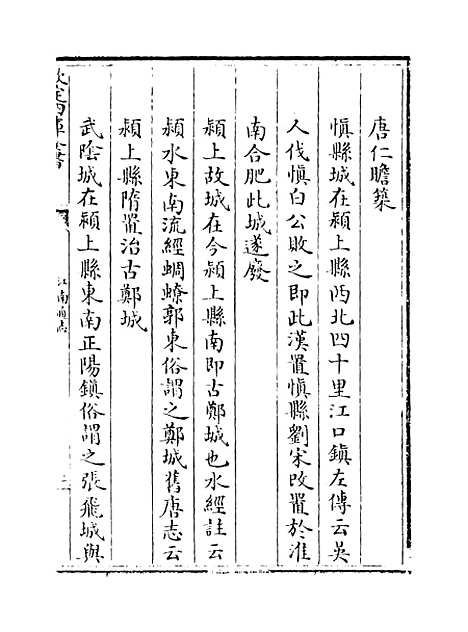 唐仁瞻築
愼縣城在潁上縣西北四十里江口鎮左傳云吳
人伐愼白公敗之即此漢置愼縣劉宋改置於淮
南合肥此城遂廢
潁上故城在今潁上縣南即古鄭城也水經註云
潁水東南流經蜩蟟郭東俗謂之鄭城舊唐志云
潁上縣隋置治古鄭城
武陰城在潁上縣東南正陽鎮俗謂之張飛城與
欽定四庫全書
江南通志